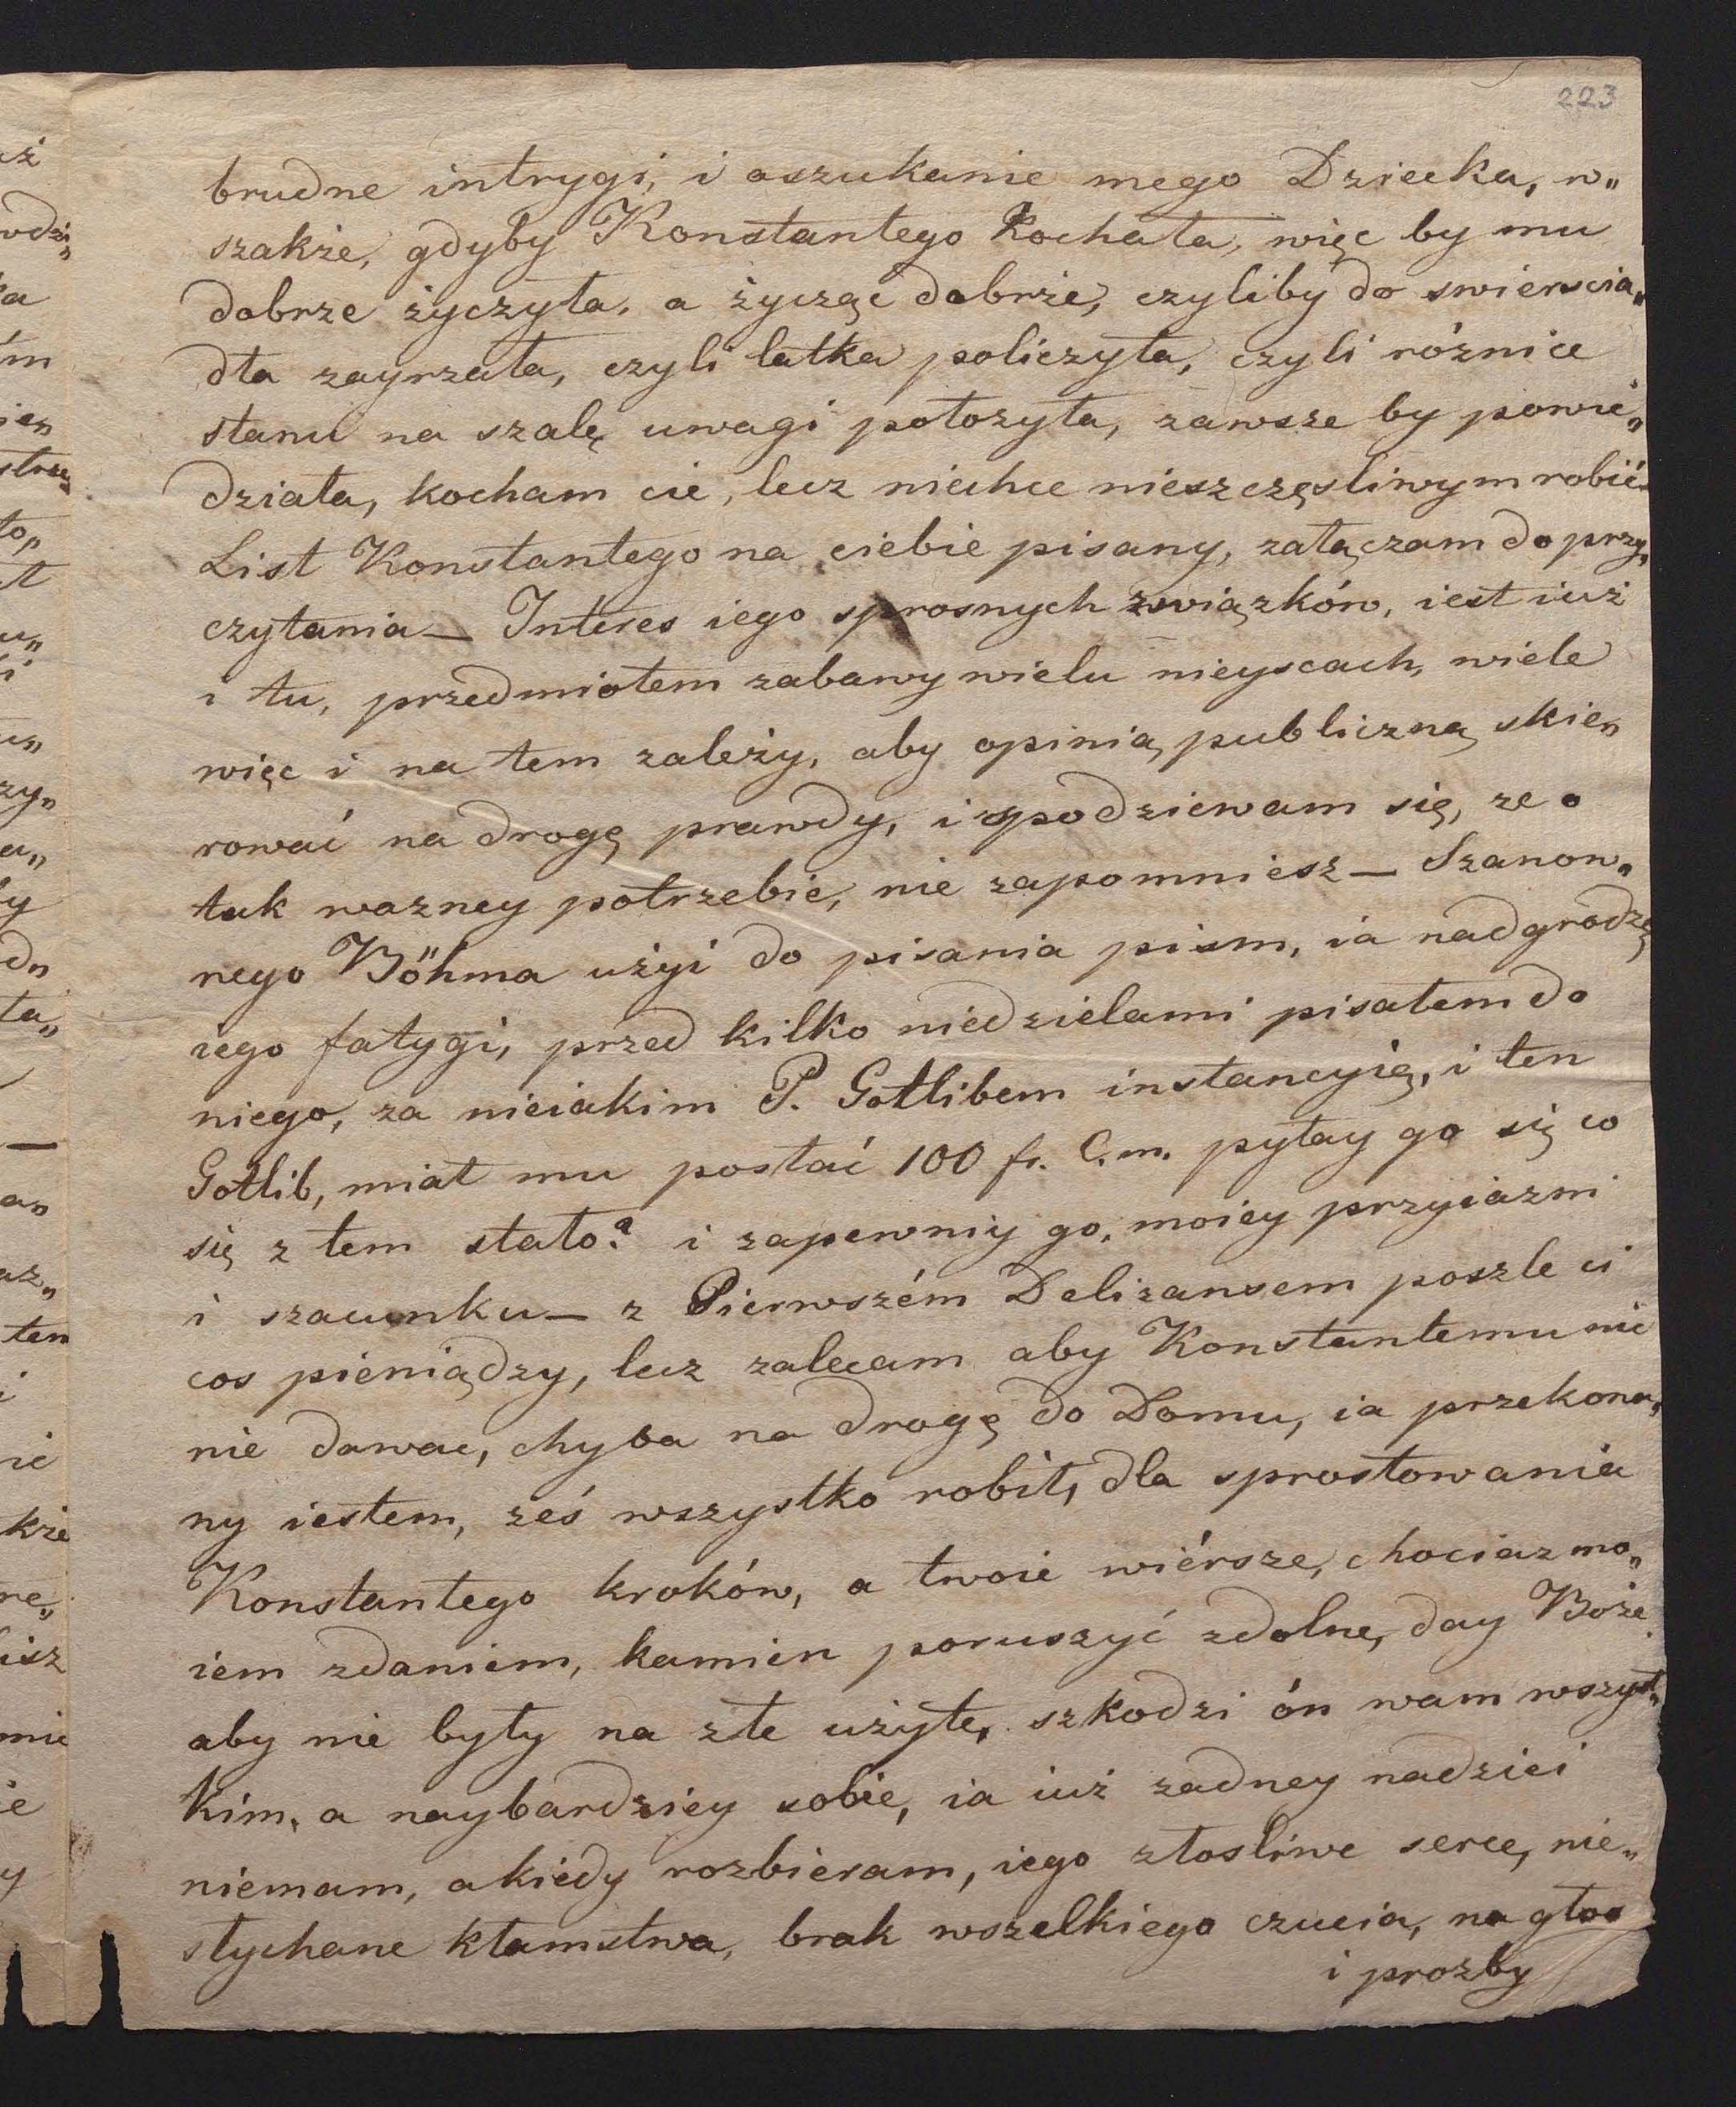 223
brudne intrygi, i oszukanie mego Dziecka, w„
szakże, gdyby Konstantego Kochała, więc by mu
dobrze życzyła, a życząc dobrze, czyliby do zwierscia„
dła zayrzała, czyli latka policzyła, czyli różnice
stanu na szalę uwagi położyła, zawsze by powie„
działa, kocham cie, lecz niechce nieszczęsliwym robić.
List Konstantego na ciebie pisany, załączam do przy„
czytania — Interes iego sprosnych związków, iest iuż
i tu, przedmiotem zabawy wielu mieyscach, wiele
więc i na tem zależy, aby opinią publiczną skie„
rować na drogę prawdy, i spodziewam się, ze o
tak wazney potrzebie, nie zapomniesz — Szanow„
nego Böhma użyi do pisania pism, ia nadgrodzę
iego fatygi, przed kilko niedzielami pisałem do
niego, za nieiakim P. Gotlibem instancyią, i ten
Gotlib, miał mu posłać 100 fr. C.m. pytay go się co
się z tem stało? i zapewniy go, moiey przyiazni
i szacunku — z Pierwszém Delizansem poszle ci
cos pieniądzy, lecz zalecam aby Konstantemu nic
nie dawac, chyba na drogę do Domu, ia przekona„
ny iestem, żeś wszystko robił, dla sprostowania
Konstantego kroków, a twoie wiérsze, chociaz mo„
iem zdaniem, kamien poruszyć zdolne, day Boże
aby nie były na złe użyte, szkodzi ón wam wszyst„
kim, a naybardziey sobie, ia iuż zadney nadziei
niemam, a kiedy rozbieram, iego złosliwe serce, nie„
słychane kłamstwa, brak wszelkiego czucia, na głos
i prozby